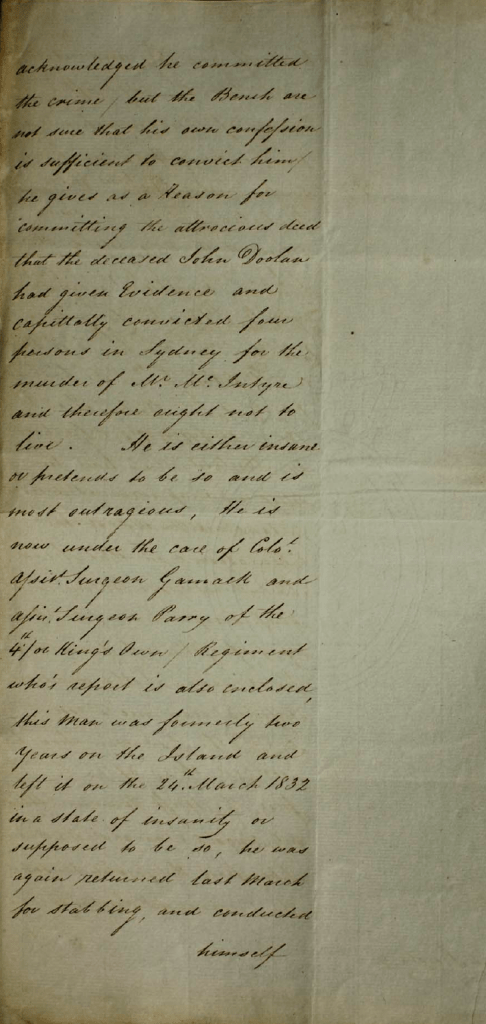 acknowledged he committed
the crime / but the Bench are
not sure that his own confession
is sufficient to convict him /
he gives as a Reason for
committing the attrocious deed
that the deceased John Doolan
had given Evidence and
capittally convicted four
persons in Sydney for the
murder of Mr. Mc. Intyre
and therefore ought not to
live. He is either insane
or pretends to be so and is
most outragious, He is
now under the care of Colol.
Assist. Surgeon Gamack and
Assist. Surgeon Parry of the
4th / or King's Own / Regiment
who's report is also enclosed,
this man was formerly two
Years on the Island and
left it on the 24th. March 1832
in a state of insanity or
supposed to be so, he was
again returned last March
for stabbing, and conducted
himself